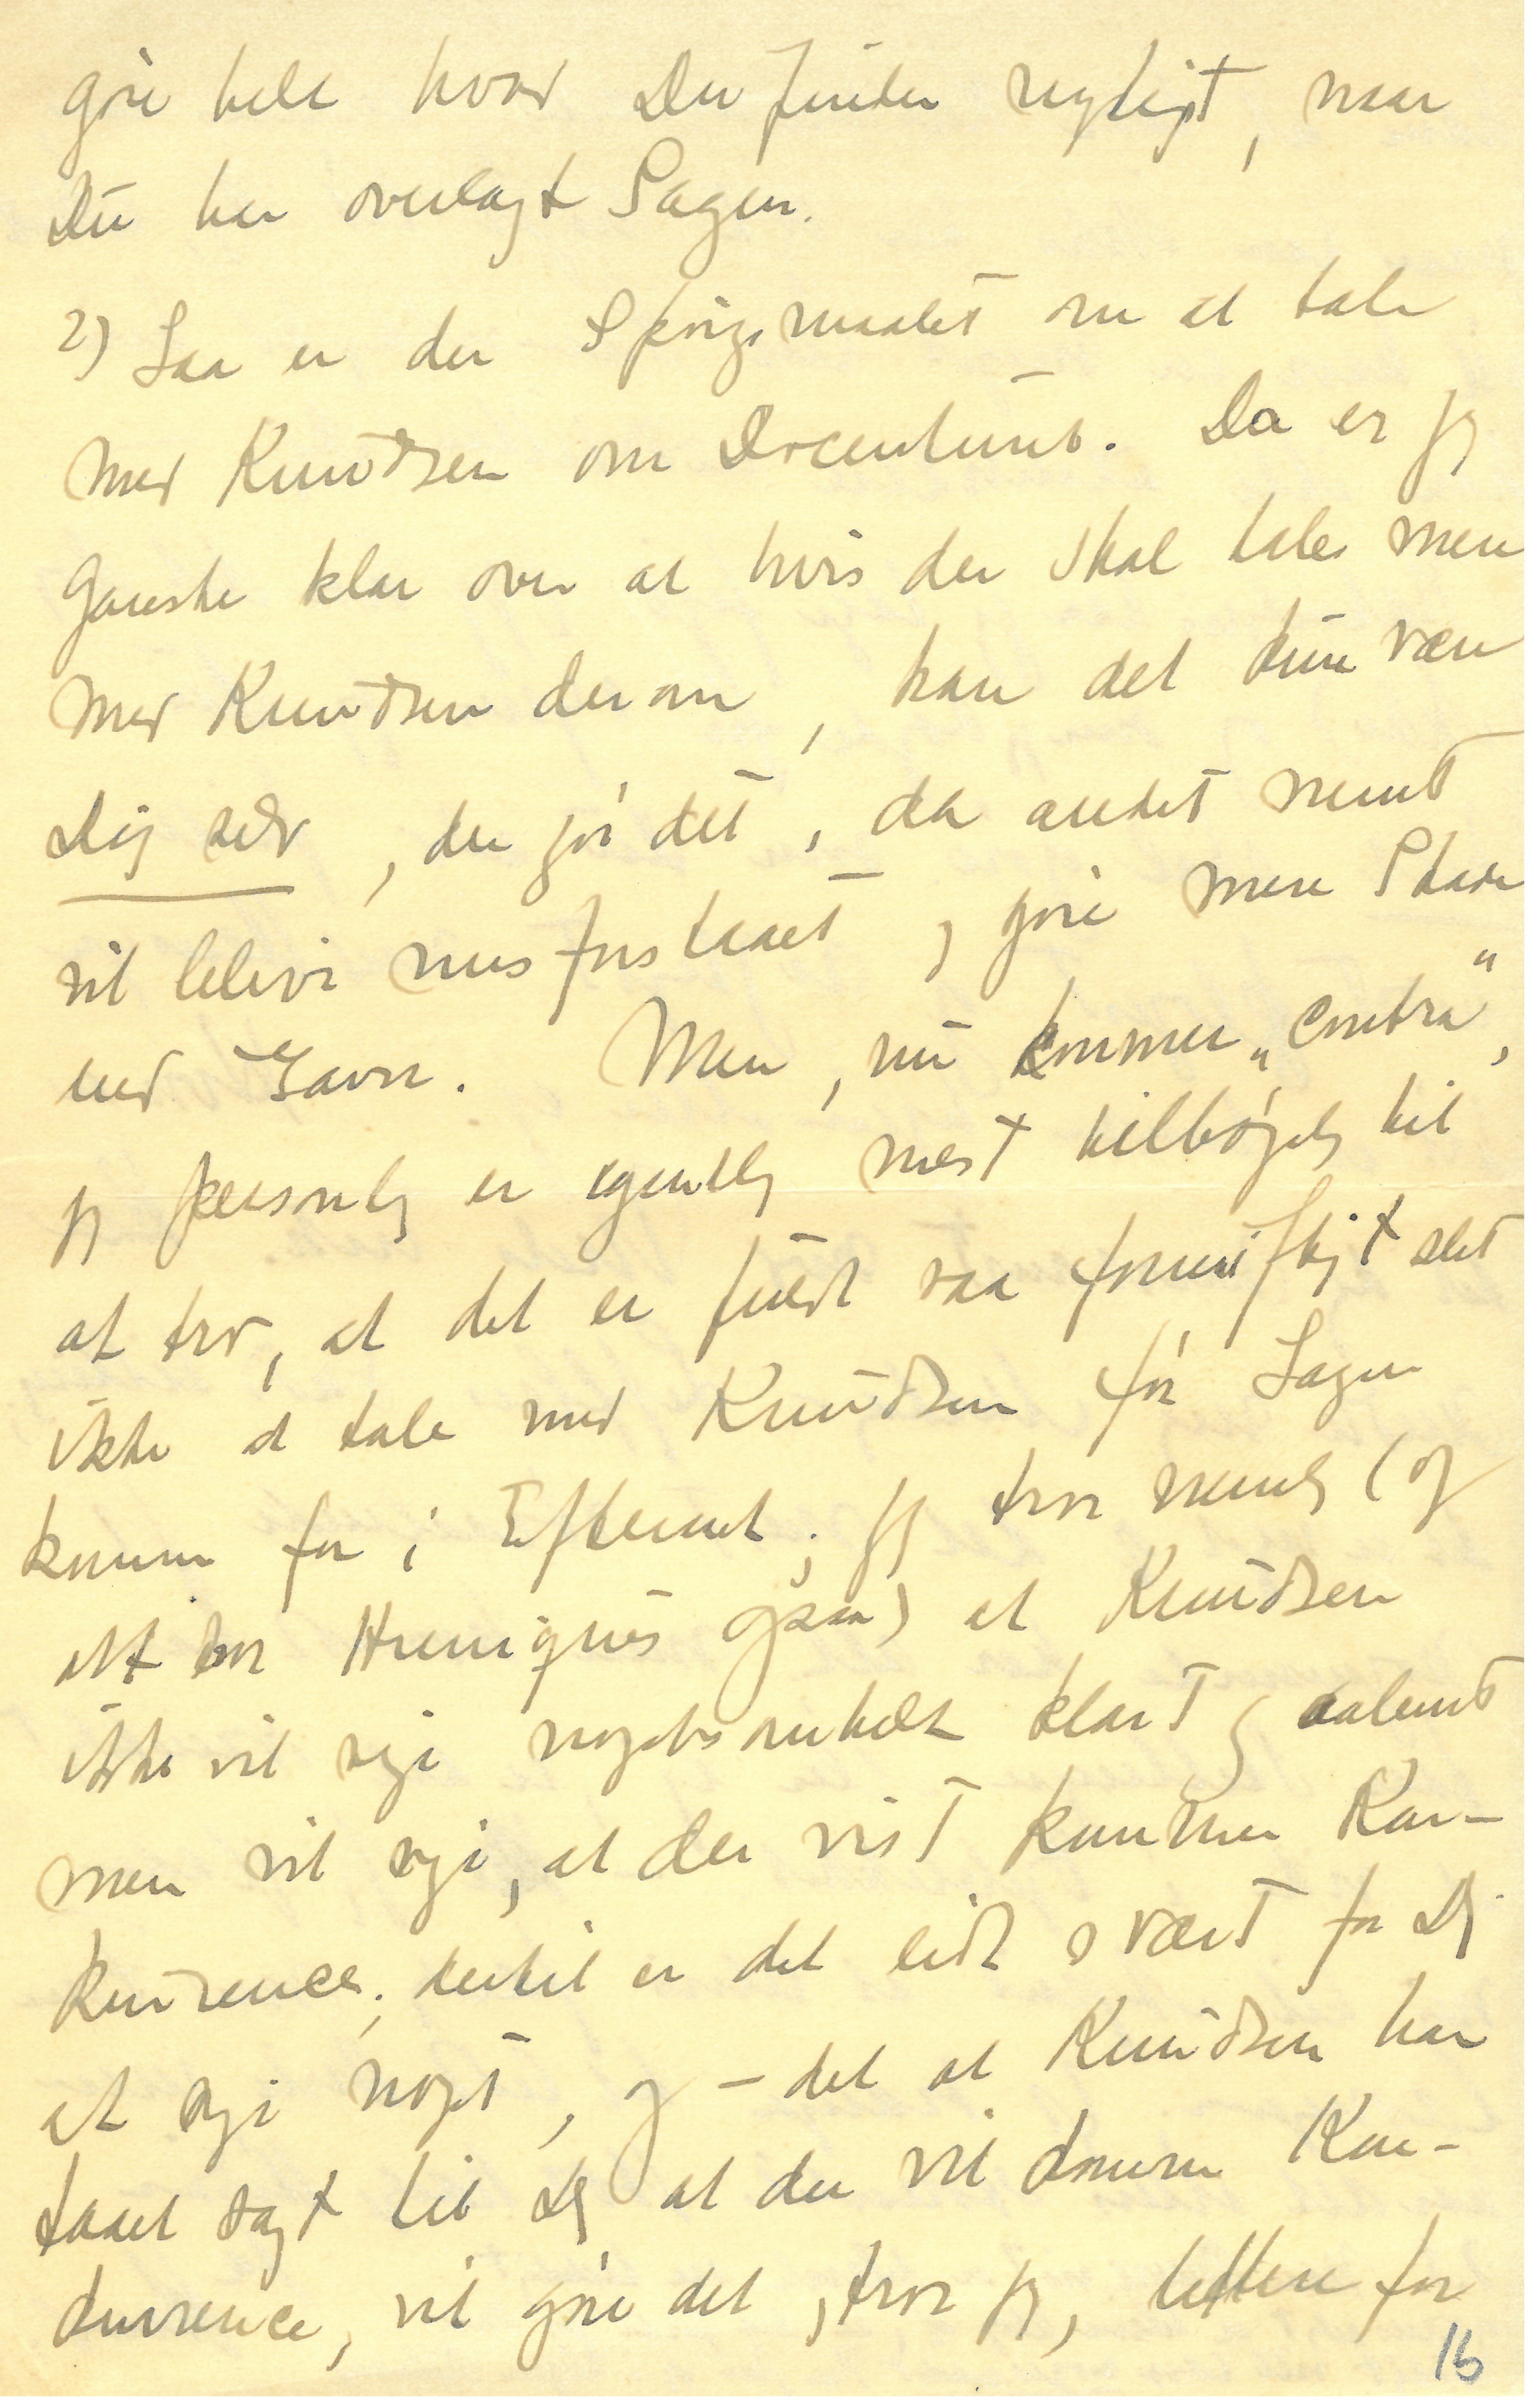 göre helt hvad Du finder rigtigst, naar
Du har overlagt Sagen.
2) Saa er der Spörgsmaalet om at tale
med Knudsen om Docenturet. Da er jeg
ganske klar over at hvis der skal tales mere
med Knudsen derom, kan det kun være
Dig selv, der gör det, da andet nemt
vil blive misforstaaet og göre mere Skade
end Gavn. Men, nu kommer „contra",
jeg personlig er egentlig mest tilböjelig til
at tro, at det er fuldt saa fornuftigt slet
ikke at tale med Knudsen för Sagen
kommer for i Efteraaret; jeg tror nemlig (og
det tror Henriques ogsaa) at Knudsen
ikke vil sige nogetsomhelst klart og aabent
men vil sige, at der vist kommer Kon-
kurrence; dertil er det lidt svært for Dig
at sige noget, og – det at Knudsen har
faaet sagt til Dig at der vil komme Kon-
kurrence, vil göre det, tror jeg, lettere for
16